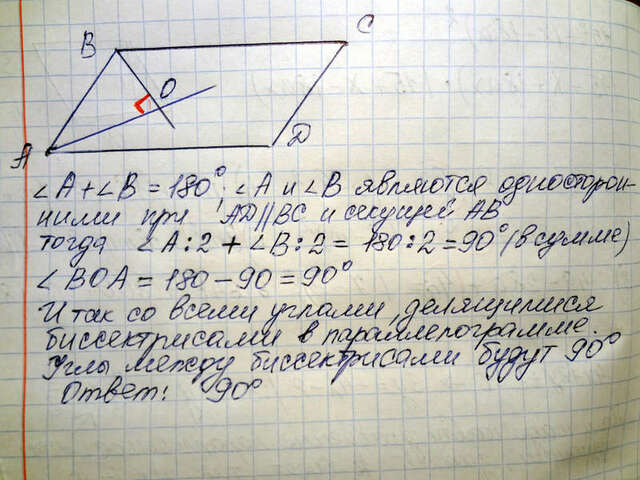 B
C
O
A
D
∠A + ∠B = 180°; ∠A и ∠B являются односторон-
ними при AD||BC и секущей AB
тогда ∠A:2 + ∠B:2 = 180:2 = 90° (в сумме)
∠BOA = 180 - 90 = 90°
И так со всеми углами, делящимися
биссектрисами в параллелограмме.
Углы между биссектрисами будут 90°
Ответ: 90°